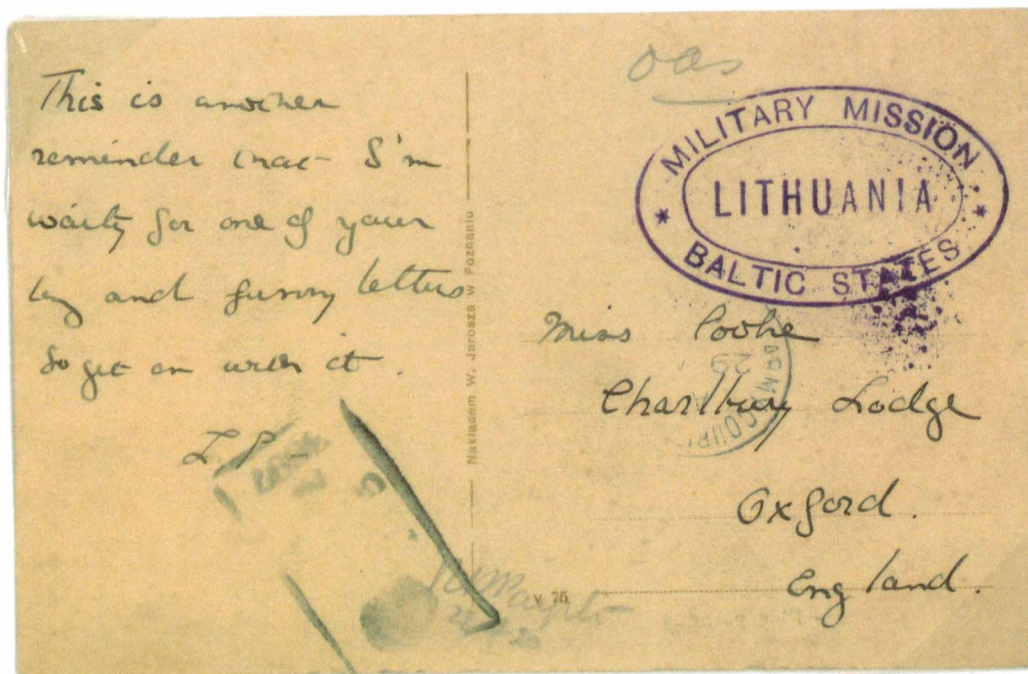 This is another
reminder that I'm
waitg for one of your
long and funny letters
So get on with it.
L.P.
Nakładem W. Jarosza w Poznaniu
OAS
MILITARY MISSION
* LITHUANIA *
BALTIC STATES
Miss
Charlbury Lodge
Oxford.
England.
ARMY COURI
29
V 75